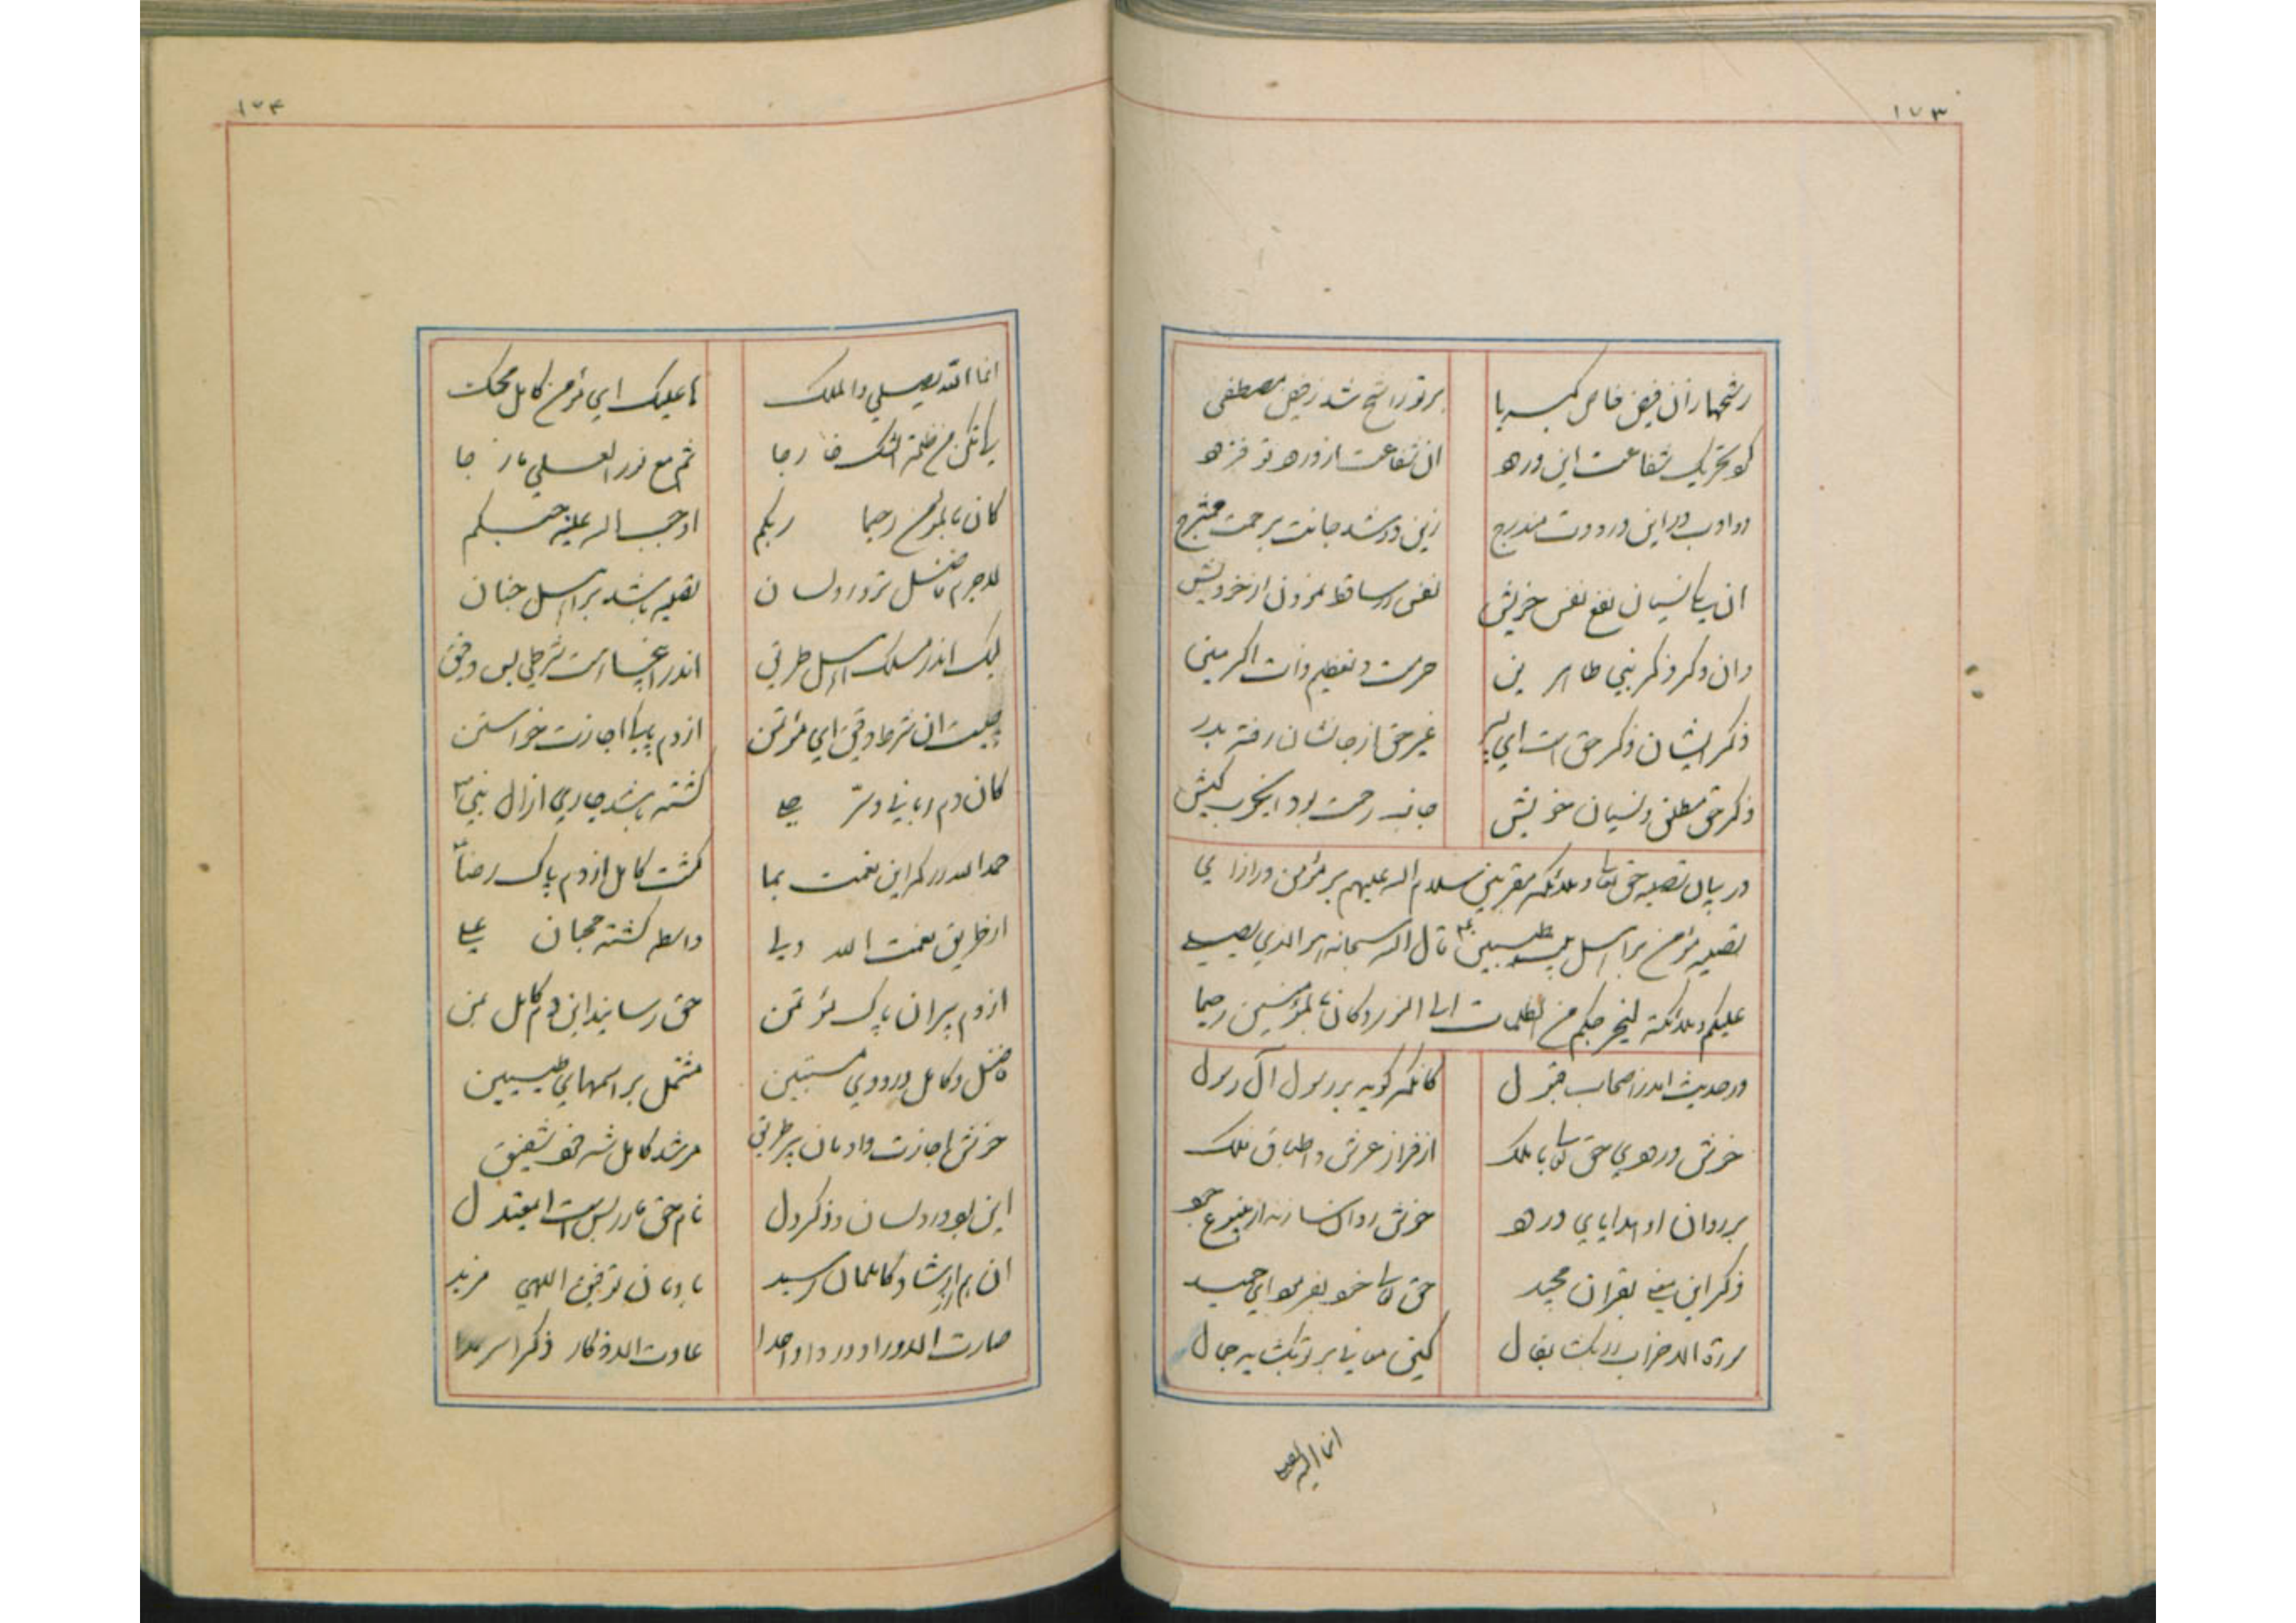 ۱۷۳
رشحها زان فیض خاص کبریا
بر تو راشح شد ز فیض مصطفی
کو بتحریک شفاعت این دره
ان شفاعت از ورده تو فزه
دو ادب در این درودت مندرج
زین دو شد جانت برحمت ممتزج
ان یکا نسیان نفع نفس خویش
نفس را ساقط نمودن از خودیش
وان دکر ذکر نبی طاهرین
حرمت و تعظیم ذات اکرمین
ذکر ایشان ذکر حق است ای پسر
غیر حق از جانشان رفته بدر
ذکر حق مطلق و نسیان خویش
جاذب رحمت بود ایخوب کیش
در بیان تصلیه حق تعالی و ملائکه مقربین سلام الله علیهم بر مؤمن در ازای
تصلیه مؤمن بر اهل بیت طیبین قال الله سبحانه هو الذی یصلی
علیکم و ملائکته لیخرجکم من الظلمات الی النور و کان بالمؤمنین رحیما
در حدیث آمد ز اصحاب قبول
کانکه گوید بر رسول آل رسول
حق تعالی با ملک
از فراز عرش و اطباق فلک
بر روان او هدایای
ذکر این معنی بقران مجید
حق تعالی خود بفرمود ای حمید
سورة الاحزاب ربت بقال
انما الله یصلی
۱۷۴
انما الله یصلی والملک
علیک ای مؤمن کامل محک
من ظلمة الشک خارجا
ثم مع نور العلی
کان بالمؤمن رحیما ربکم
اوجب الله علیه حبکم
لاجرم فاضل تر ورد لسان
تصلیه باشد بر اهل جنان
لیک اندر مسلک اهل طریق
اندر اینجا هست شرطی بس دقیق
چیست ان شرط دقیق ای مؤتمن
از دم پیکا اجازت خواستن
کان دم ربانی و سر علی
گشته باشد جاری از ال نبی
حمد الله در کمر این نعمت بما
گشت کامل از دم پاک رضا
از طریق نعمت الله ولی
واسطه گشته محبان علی
از دم پیران پاک مؤتمن
حق رسانید این دم کامل بمن
فاضل و کامل درودی مستبین
مشتمل بر اسمهای طیبین
خوش اجازت دادمان پیر طریق
مرشد کامل شه خوش شفیق
این بود ورد لسان و ذکر دل
نام حق
ان هم از ارشاد کاملمان رسید
بادمان توفیق اللهی مزید
صارت الاوراد وردا واحدا
عادت الاذکار ذکرا سرمدا